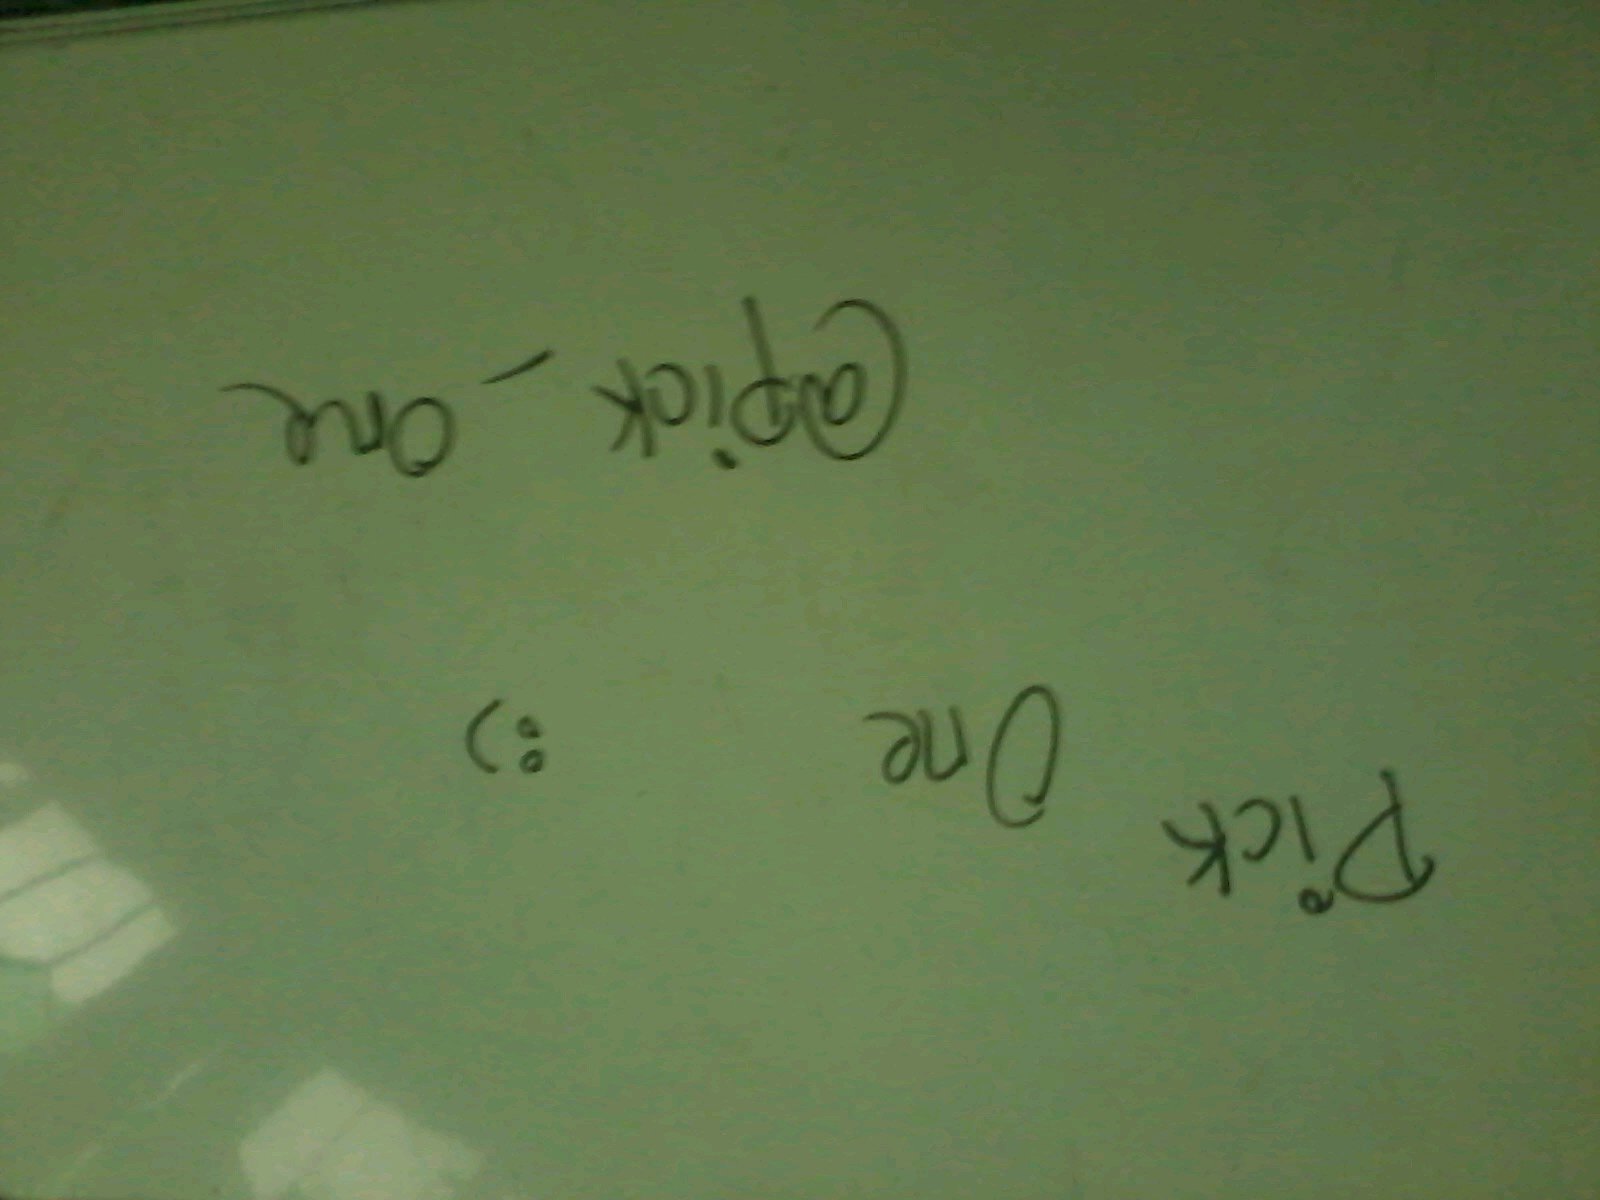 Pick One :)
@pick_one